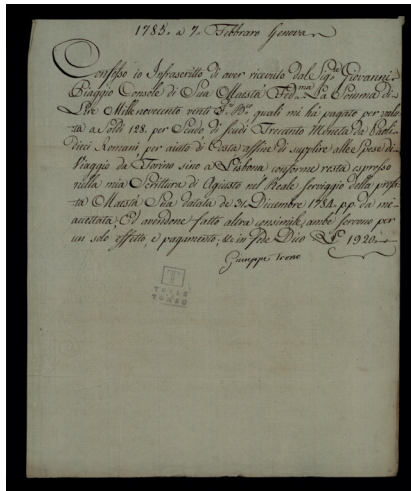 1785. a 7. Febbraro Genova
Confesso io Infrascritto di aver ricevuto dal Sig.r Giovanni
Piaggio Console di Sua Maestà Fed.ma La Somma di
Lire Millenovecento venti quali mi ha pagato per valu-
ta a Soldi 128. per Scudo di Scudi Trecento Moneta da Paoli
Dieci Romani per aiuto di Costa affine di supplire alle Spese di
Viaggio da Torino sino a Lisbona conforme resta espresso
nella mia Scrittura di Agiusto nel Reale Serviggio della prefa-
ta Maestà Sua datata de 21. Dicembre 1784. pp da me
accettata; Ed avendone fatto altra consimile, ambe servono per
un solo effetto, e pagamento; in fede Dico 1920.
Giuseppe Trono
TORRE
TOMBO